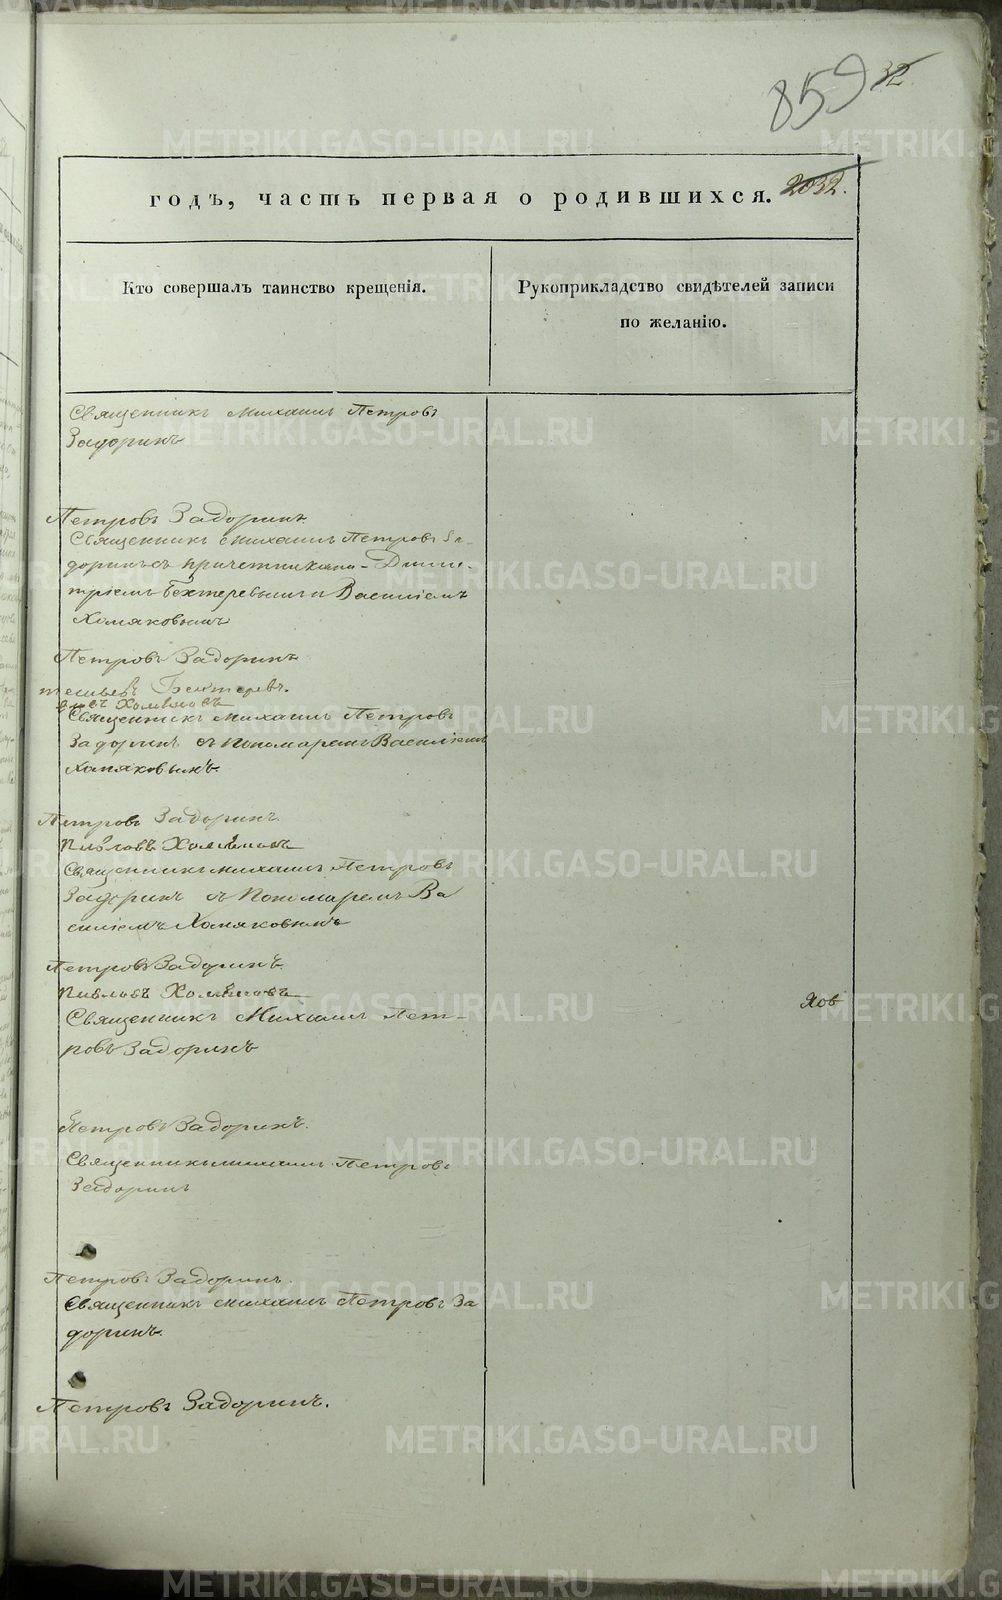 859 32.
годъ, часть первая о родившихся. 2032.
Кто совершалъ таинство крещенія.
Рукоприкладство свидѣтелей записи
по желанію.
Священникъ Михаилъ Петровъ
Задоринъ
Петровъ Задоринъ
Священникъ Михаилъ Петровъ За-
доринъ съ причетниками Дими-
тріемъ Бехтеревымъ и Василіемъ
Хомяковымъ
Петровъ Задоринъ
Бехтеревъ.
Хомяковъ
Священникъ Михаилъ Петровъ
Задоринъ съ Пономаремъ Василіемъ
Хомяковымъ.
Петровъ Задоринъ.
Павловъ Хомяковъ
Священникъ Михаилъ Петровъ
Задоринъ съ Пономаремъ Ва
силіемъ Хомяковымъ
Петровъ Задоринъ
Павловъ Хомяковъ
Священникъ Михаилъ Пет-
ровъ Задоринъ
Петровъ Задоринъ.
Священникъ Михаилъ Петровъ
Задоринъ
Петровъ Задоринъ.
Священникъ Михаилъ Петровъ За
доринъ.
Петровъ Задоринъ.
METRIKI.GASO-URAL.RU